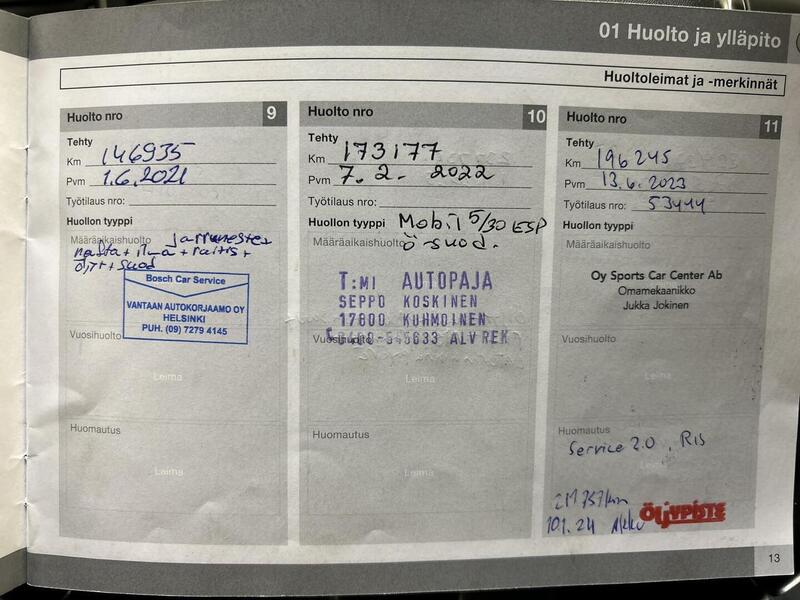 01 Huolto ja ylläpito
Huoltoleimat ja -merkinnät
Huolto nro 9
Tehty
Km 146935
Pvm 1.6.2021
Työtilaus nro:
Huollon tyyppi
Määräaikaishuolto jarruneste +
+ ilma + raitis +
öljy + suod
Bosch Car Service
VANTAAN AUTOKORJAAMO OY
HELSINKI
PUH. (09) 7279 4145
Vuosihuolto
Leima
Huomautus
Leima
Huolto nro 10
Tehty
Km 173177
Pvm 7.2. 2022
Työtilaus nro:
Huollon tyyppi Mobil 5/30 ESP
Määräaikaishuolto ö-suod.
T:MI AUTOPAJA
SEPPO KOSKINEN
17800 KUHMOINEN
ALV REK
Vuosihuolto
Leima
Huomautus
Leima
Huolto nro 11
Tehty
Km 196245
Pvm 13.6.2023
Työtilaus nro: 53414
Huollon tyyppi
Määräaikaishuolto
Oy Sports Car Center Ab
Omamekaanikko
Jukka Jokinen
Vuosihuolto
Leima
Huomautus
Service 2.0, RIS
Leima
211757km
10.1.24 Akku
ÖLJYPISTE
13